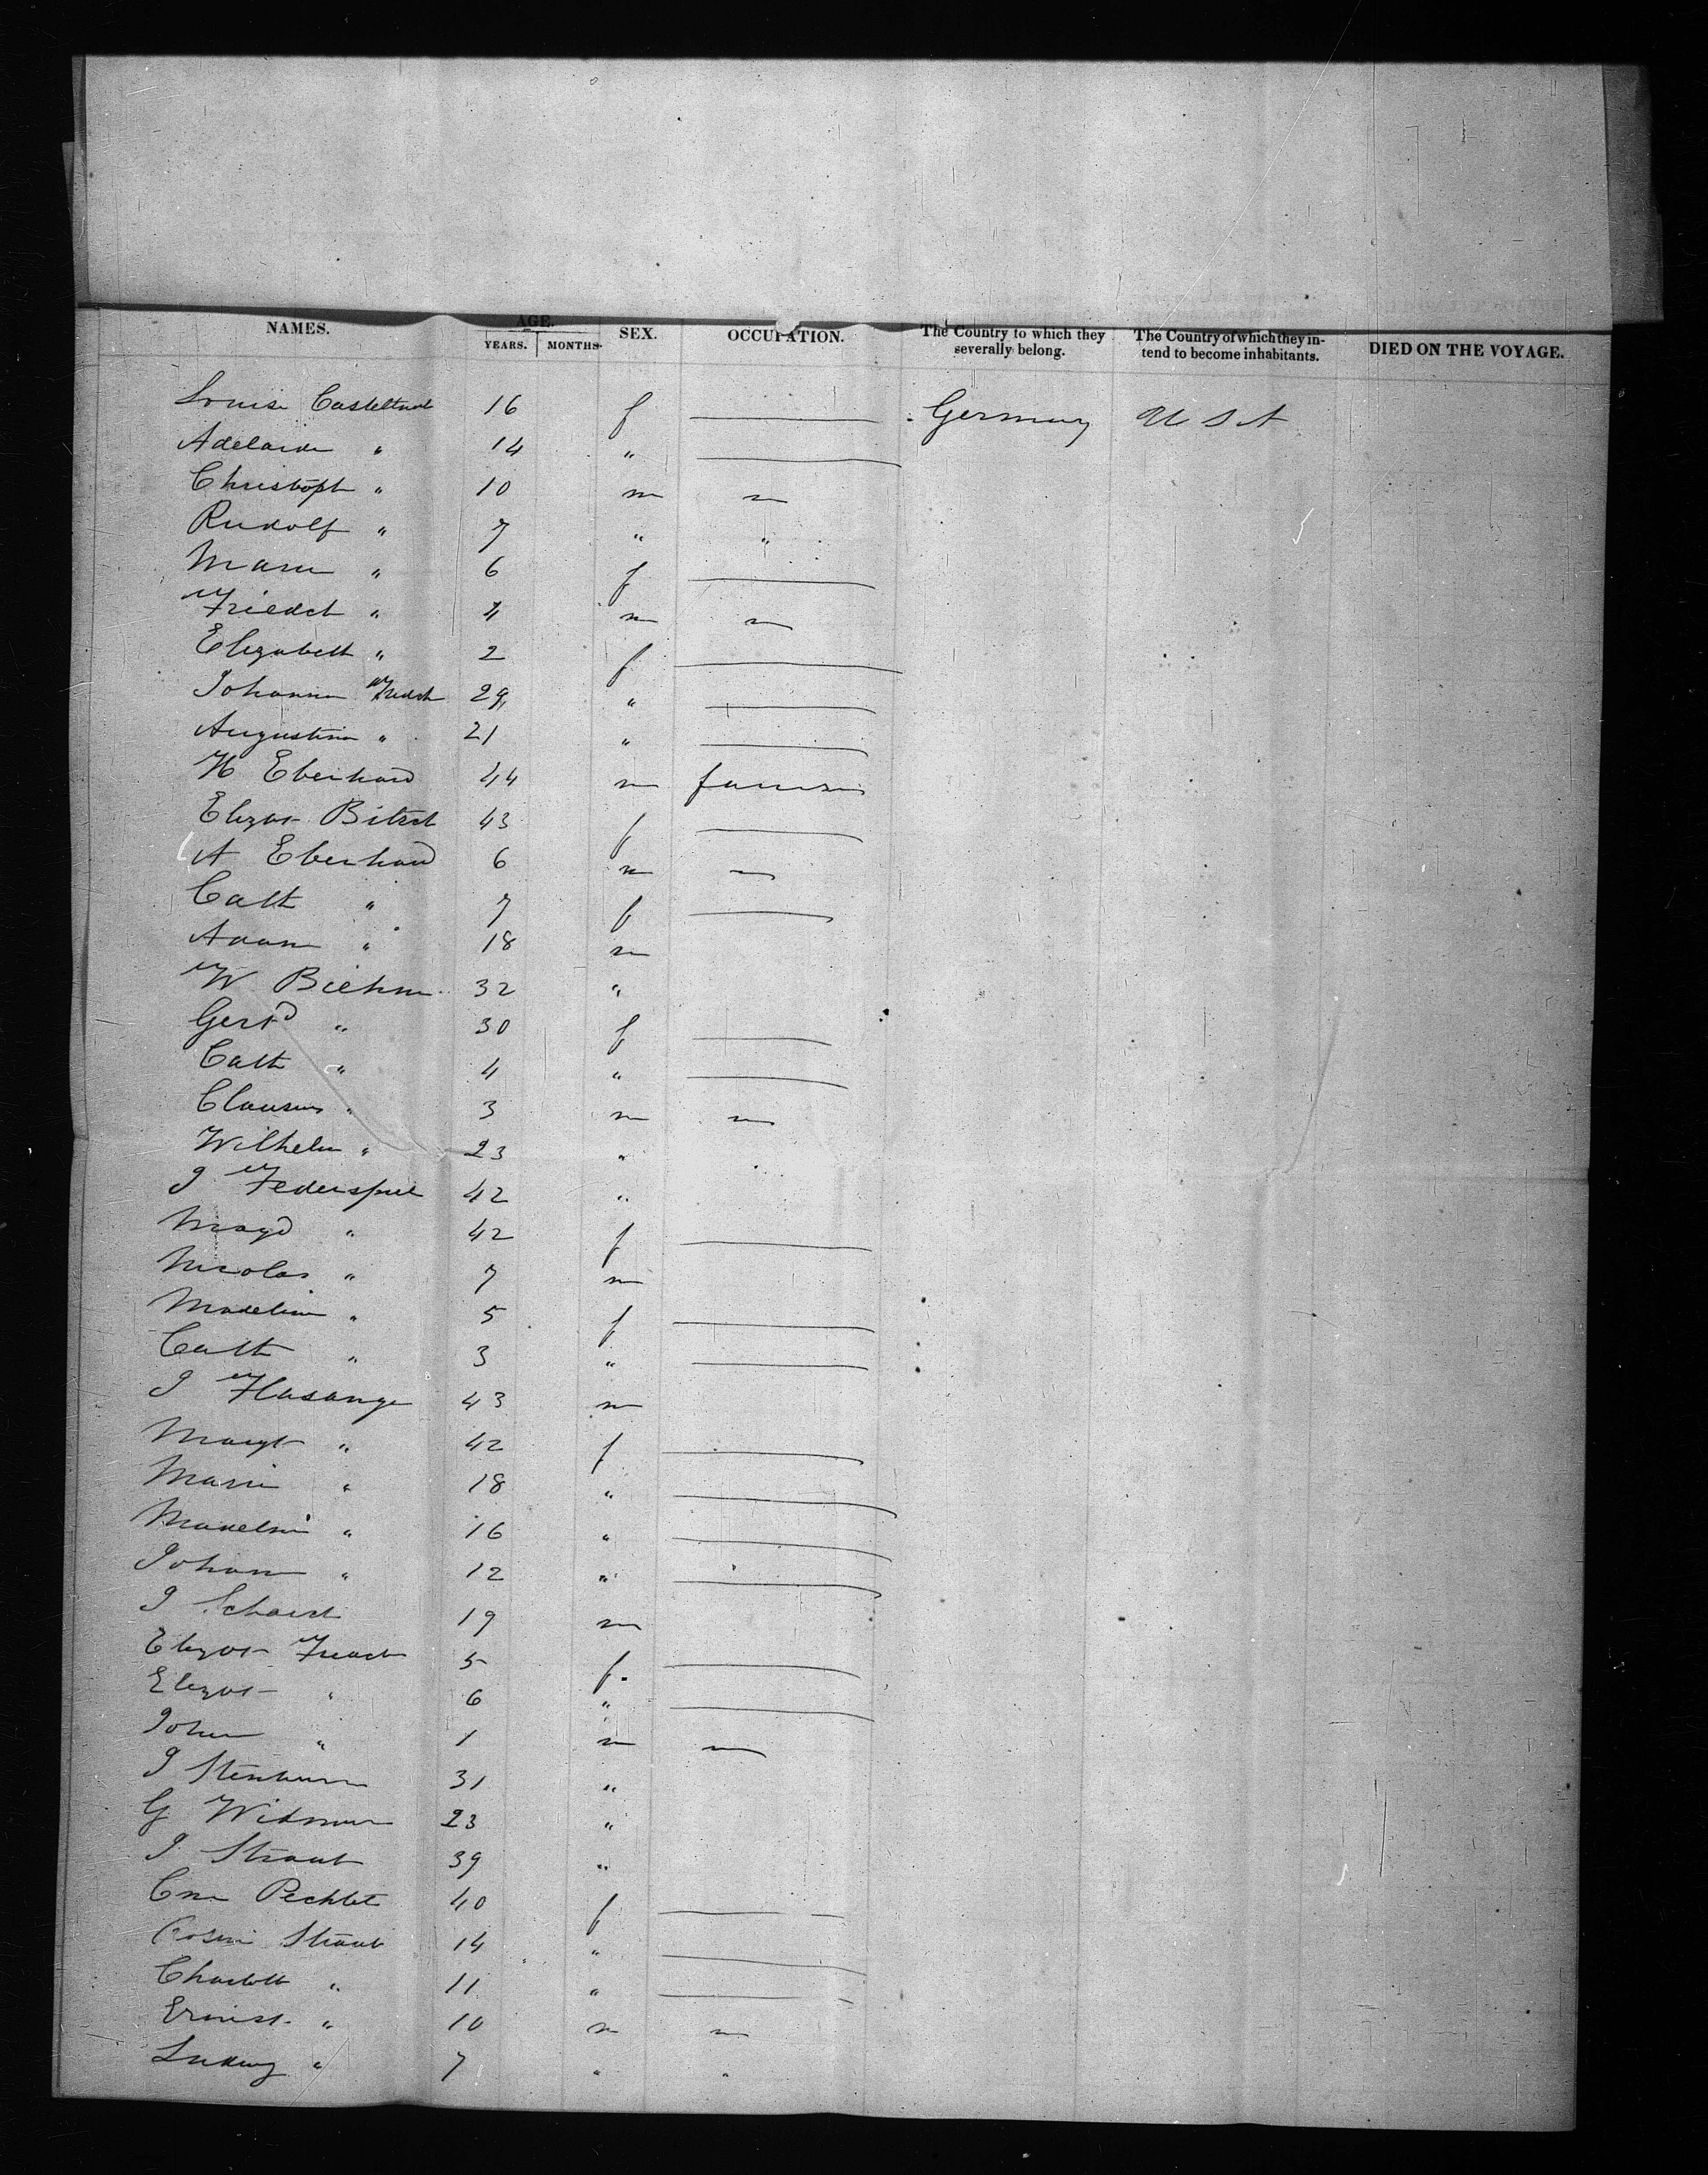 NAMES. AGE. YEARS. MONTHS. SEX. OCCUPATION. The Country to which they severally belong. The Country of which they intend to become inhabitants. DIED ON THE VOYAGE.
Louise 16 f — Germany U S A
Adelaide " 14 " —
Christoph " 10 m m
Rudolf " 7 " "
Marie " 6 f —
Friedch " 4 m m
Elizabeth " 2 f —
Johanna 29 " —
Augustine " 21 " —
H Eberhard 44 m farmer
Elizat 43 f —
A Eberhard 6 m m
Cath " 7 f —
Adam " 18 m
W Biehm 32 "
Gertd " 30 f —
Cath " 4 " —
" 3 m m
Wilhelm " 23 "
J Federspiel 42 "
Magd " 42 f —
Nicolas " 7 m
Madeline " 5 f —
Cath " 3 " —
J 43 m
Margt " 42 f —
Marie " 18 " —
Madeline " 16 " —
Johann " 12 " —
J 19 m
Elizat 5 f. —
Elizat " 6 " —
John " 1 m m
J 31 "
G Widman 23 "
J Straub 39 "
40 f —
Rosine Straub 14 " —
Charlott " 11 " —
Ernist " 10 m m
Ludwig " 7 " "